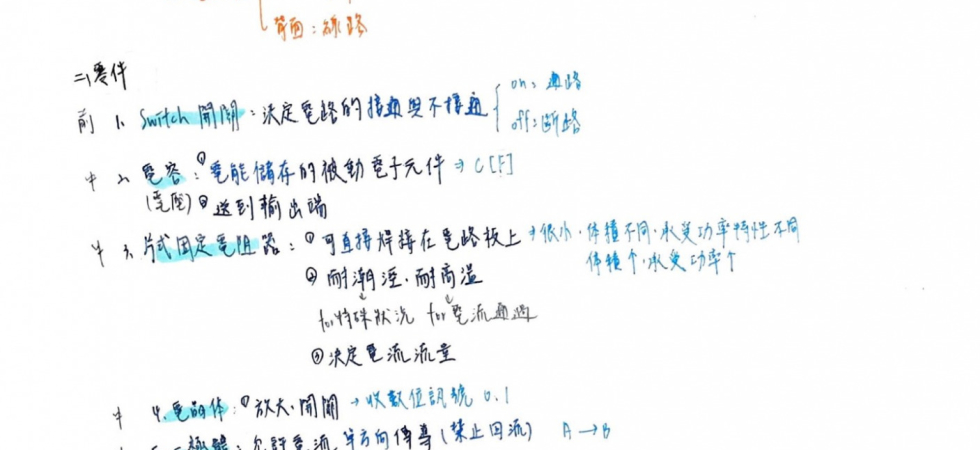 背面：線路
二、零件
前 1. Switch 開關：決定電路的接通與不接通 { on：通路
off：斷路
中 2. 電容：①電能儲存的被動電子元件 → C [F]
(電壓) ②送到輸出端
中 3. 片式固定電阻器：①可直接焊接在電路板上 → 很小．体積不同．承受功率特性不同
体積个．承受功率个
②耐潮溼．耐高溫
for特殊狀況 for電流通過
③決定電流流量
中 4. 電晶体：①放大．開關 → 收數位訊號 0.1
二極體：允許電流單方向傳導(禁止回流) A → B